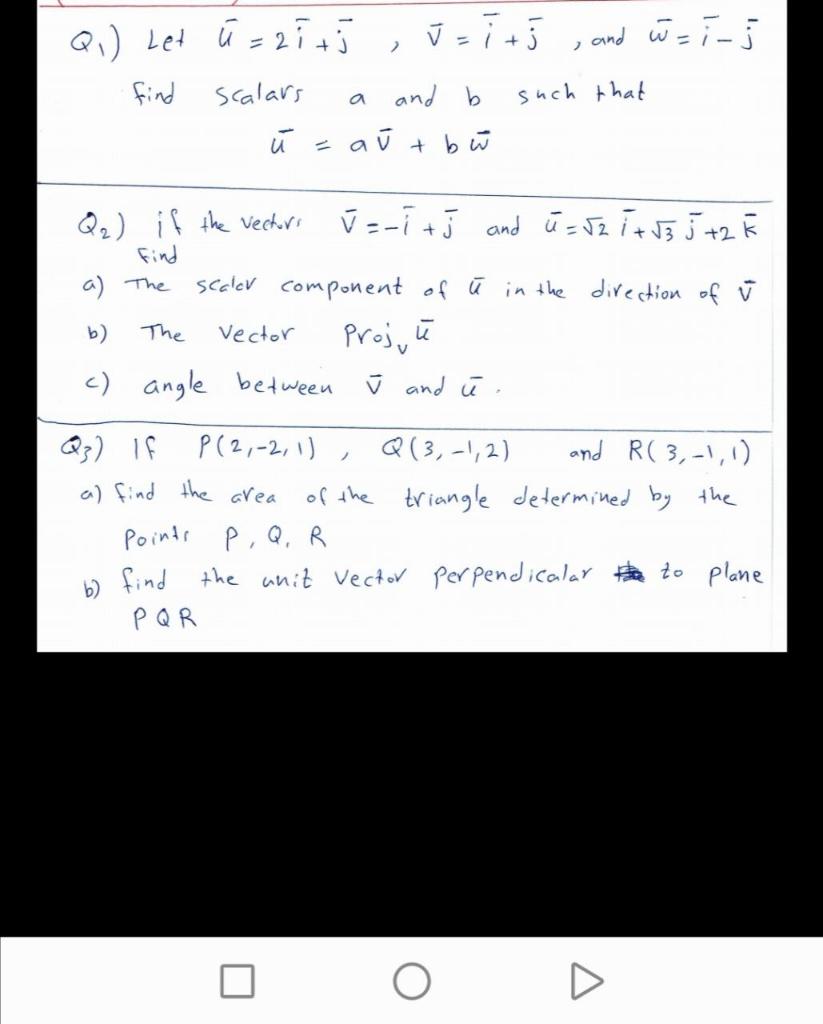 Q₁) Let ū = 2ī + j̄ , v̄ = ī + j̄ , and w̄ = ī - j̄
find scalars a and b such that
ū = a v̄ + b w̄
Q₂) if the vectors v̄ = -ī + j̄ and ū = √2 ī + √3 j̄ + 2 k̄
Find
a) The scaler component of ū in the direction of v̄
b) The vector Projᵥ ū
c) angle between v̄ and ū .
Q₃) If P(2,-2,1) , Q(3,-1,2) and R(3,-1,1)
a) find the area of the triangle determined by the
Points P, Q, R
b) find the unit vector perpendicalar to plane
PQR